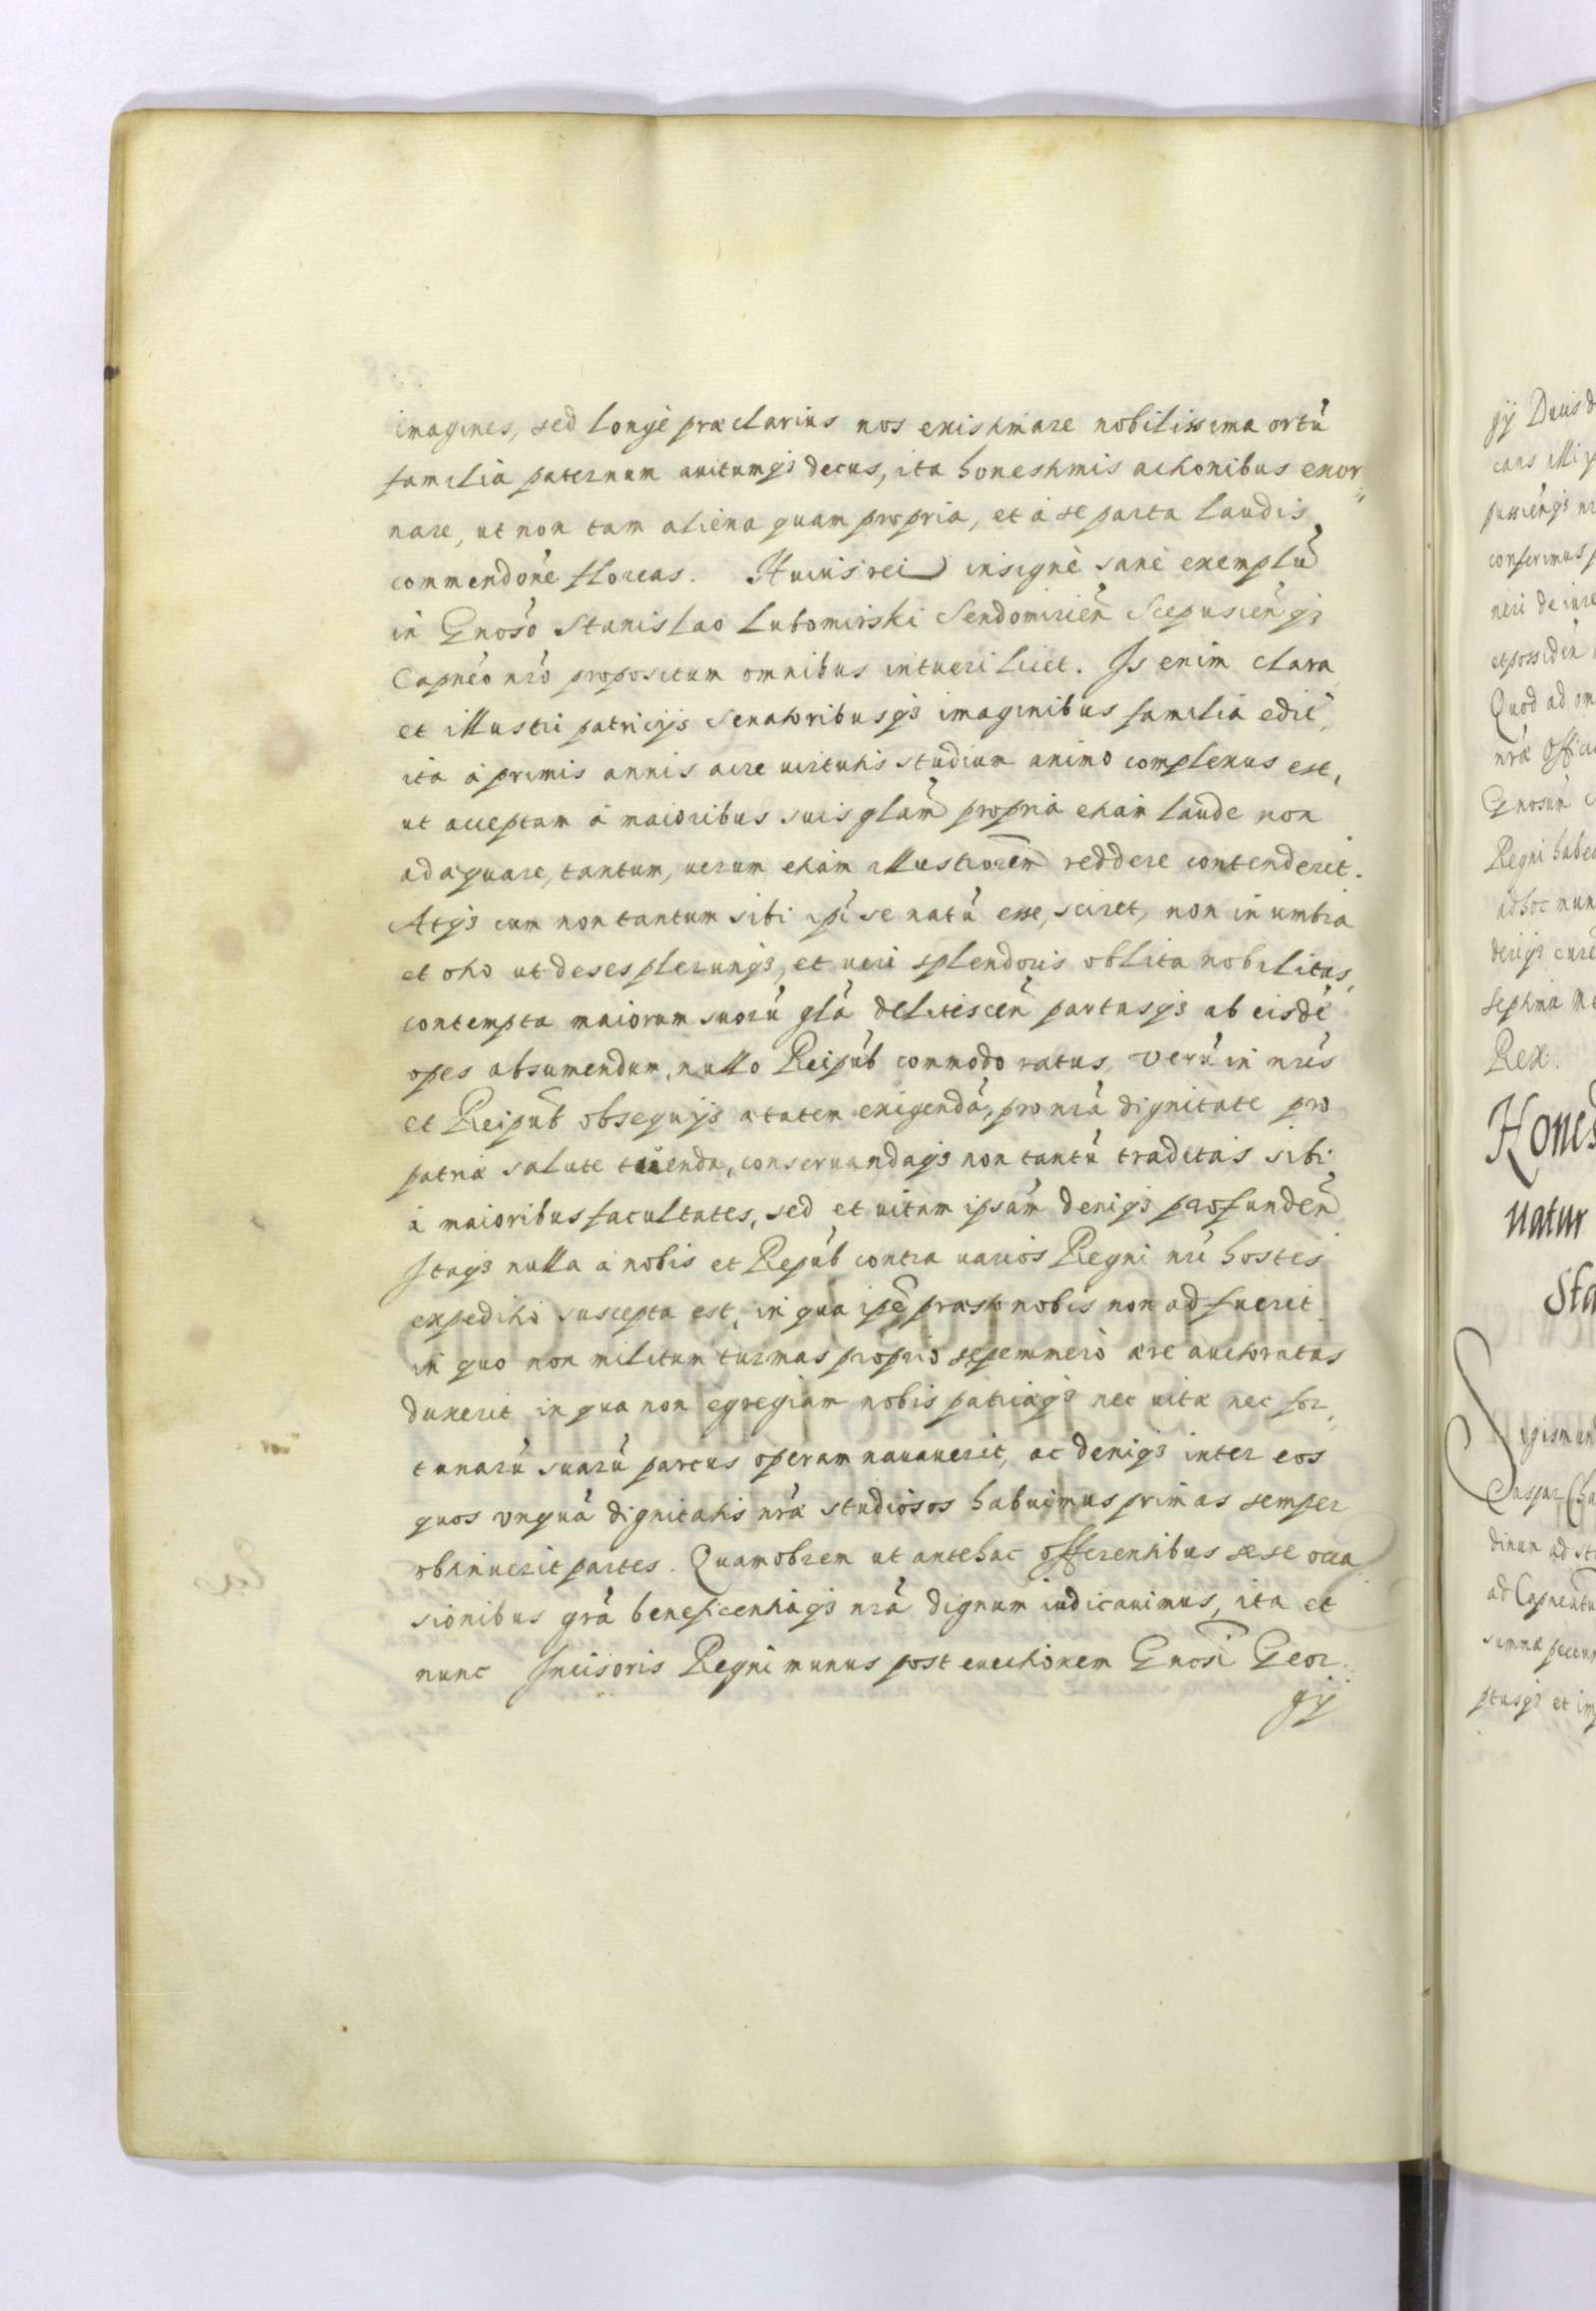 imagines, sed longè præclarius nos existimare nobilissima ortũ
familia paternum auitumq₃ decus, ita honestimis actionibus exor„
nare, ut non tam aliena quam propria, et à se parta laudis
commendoñe floreas. Huius rei insignè sanè exemplũ
in Gnoso Stanislao Lubomirski Sendomirieñ Scepusieñq₃
Capneo nrõ propositum omnibus intueri licet. Is enim clara
et illustri patricijs Senatoribusq₃ imaginibus familia edit9,
ita à primis annis acre uirtutis studium animo complexus est,
ut acceptam à maioribus suis glam̃ propria etiam laude non
adæquare, tantum, uerum etiam illustriorem reddere contenderit.
Atq₃ cum non tantum sibi ipsi se natũ esse, sciret, non in umbra
et otio ut deses plerunq₃, et ueri splendoris oblita nobilitas,
contempta maiorum suorũ glã delitesceñ partasq₃ ab eisdẽ
opes absumendum, nullo Reipub̃ commodo ratus, verũ in nris̃
et Reipub̃ obsequijs ætatem exigendã, pro nrã dignitate pro
patriæ salute tuenda, conseruandaq₃ non tantũ traditas sibi
à maioribus facultates, sed et uitam ipsam deniq₃ profundeñ
Itaq₃ nulla à nobis et Repub̃ contra uarios Regni nri̇̃ hostes
expeditio suscepta est, in qua ipse præsto nobis non adfuerit
in quo non militum turmas proprio sepenumerò ære auctoratas
duxerit in qua non egregiam nobis patriæq₃ nec uitæ nec for„
tunarũ suarũ parcus operam nauauerit, ac deniq₃ inter eos
quos vnquã dignitatis nræ̃ studiosos habuimus primas semper
obtinuerit partes. Quamobrem ut antehac offerentibus sese occa
sionibus grã beneficentiaq₃ nrã dignum iudicauimus, ita et
nunc Incisoris Regni munus post euectionem Gnosi Geor„
gij
gÿ Dnus
cans illi
conferimus
neri de iure
et possiden
Quod ad om
nræ Offic
Gnosum
Regni habe
ad hoc nun
septima
Rex.
Hones
natur
Sta
Sigismun
Caspar Cha
dinum ad
summæ pecun
ptusq₃ et im